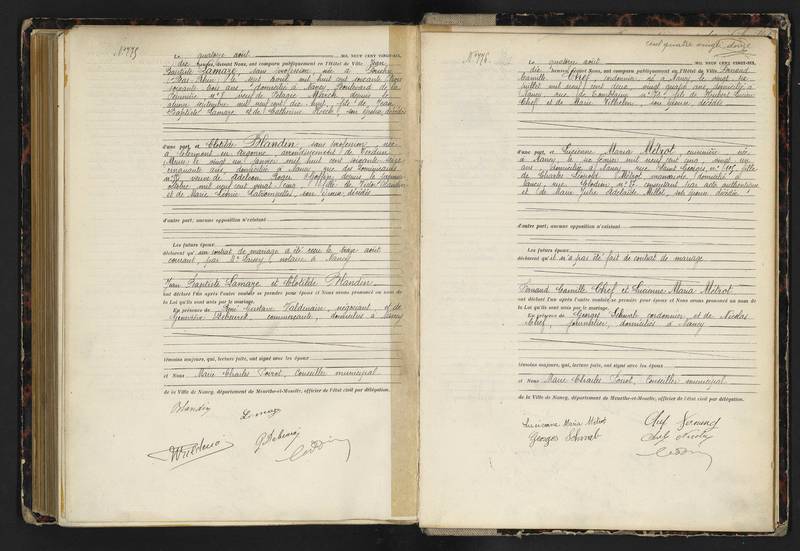 N° 775
Le quatorze août MIL NEUF CENT VINGT-SIX,
dix heures, devant Nous, ont comparu publiquement en l'Hôtel de Ville Jean
Baptiste Lamaze, sans profession, né à
Bas Rhin, le août mil huit cent soixante trois
soixante trois ans, domicilié à Nancy, Boulevard de la
n° veuf de March depuis le
septembre mil neuf cent dix huit, fils de Jean
Baptiste Lamaze et de Catherine son épouse, décédés
d'une part, et Clotilde Blandin, sans profession, née
à Clermont en Argonne, arrondissement de Verdun
Meuse le vingt un janvier mil huit cent soixante seize
cinquante ans, domiciliée à Nancy, rue des Dominicains
n° veuve de Roger depuis le
octobre mil neuf cent vingt cinq, fille de Blandin
et de Marie son épouse, décédés
d'autre part; aucune opposition n'existant
Les futurs époux
déclarent qu'un contrat de mariage a été reçu le treize août
courant, par Me notaire à Nancy
Jean Baptiste Lamaze et Clotilde Blandin
ont déclaré l'un après l'autre vouloir se prendre pour époux et Nous avons prononcé au nom de
la Loi qu'ils sont unis par le mariage.
En présence de René Gustave Valdenaire, négociant, et de
commerçante, domiciliés à Nancy
témoins majeurs, qui, lecture faite, ont signé avec les époux
et Nous Marie Charles Poirot, Conseiller municipal
de la Ville de Nancy, département de Meurthe-et-Moselle, officier de l'état civil par délégation.
Blandin
Lamaze
cent quatre vingt douze
N° 776
Le quatorze août MIL NEUF CENT VINGT-SIX,
dix heures, devant Nous, ont comparu publiquement en l'Hôtel de Ville Fernand
Camille Chef, cordonnier, né à Nancy, le vingt
juillet mil neuf cent deux, vingt quatre ans, domicilié à
Nancy, rue fils de Hubert Lucien
Chef et de Marie Vilhelm, son épouse, décédés
d'une part, et Lucienne Maria Métrot, née
à Nancy, le février mil neuf cent cinq, vingt un
ans, domiciliée à Nancy, rue Saint Georges n° fille
de Charles Léopold Métrot, domicilié à
Nancy, rue Clodion n° consentant par acte authentique
et de Marie Julie Adélaïde son épouse décédée
d'autre part; aucune opposition n'existant
Les futurs époux
déclarent qu'il n'a pas été fait de contrat de mariage
Fernand Camille Chef et Lucienne Maria Métrot
ont déclaré l'un après l'autre vouloir se prendre pour époux et Nous avons prononcé au nom de
la Loi qu'ils sont unis par le mariage.
En présence de Georges Schwab, cordonnier, et de Nicolas
Chef, domiciliés à Nancy
témoins majeurs, qui, lecture faite, ont signé avec les époux
et Nous Marie Charles Poirot, Conseiller municipal
de la Ville de Nancy, département de Meurthe-et-Moselle, officier de l'état civil par délégation.
Lucienne Maria Métrot
Chef Fernand
Georges Schwab
Chef Nicolas